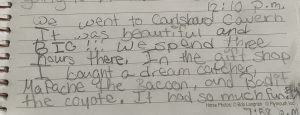 12:10 p.m.
We went to Carlsbad Cavern
It was beautiful and
BIG!!! We spend three
hours there. In the gift shop
I bought a dream catcher,
MaPache the Racoon, and Rodit
the coyote. It had so much fun
Horse Photos © Bob Langrish © Plymouth Inc
7:52 p.m